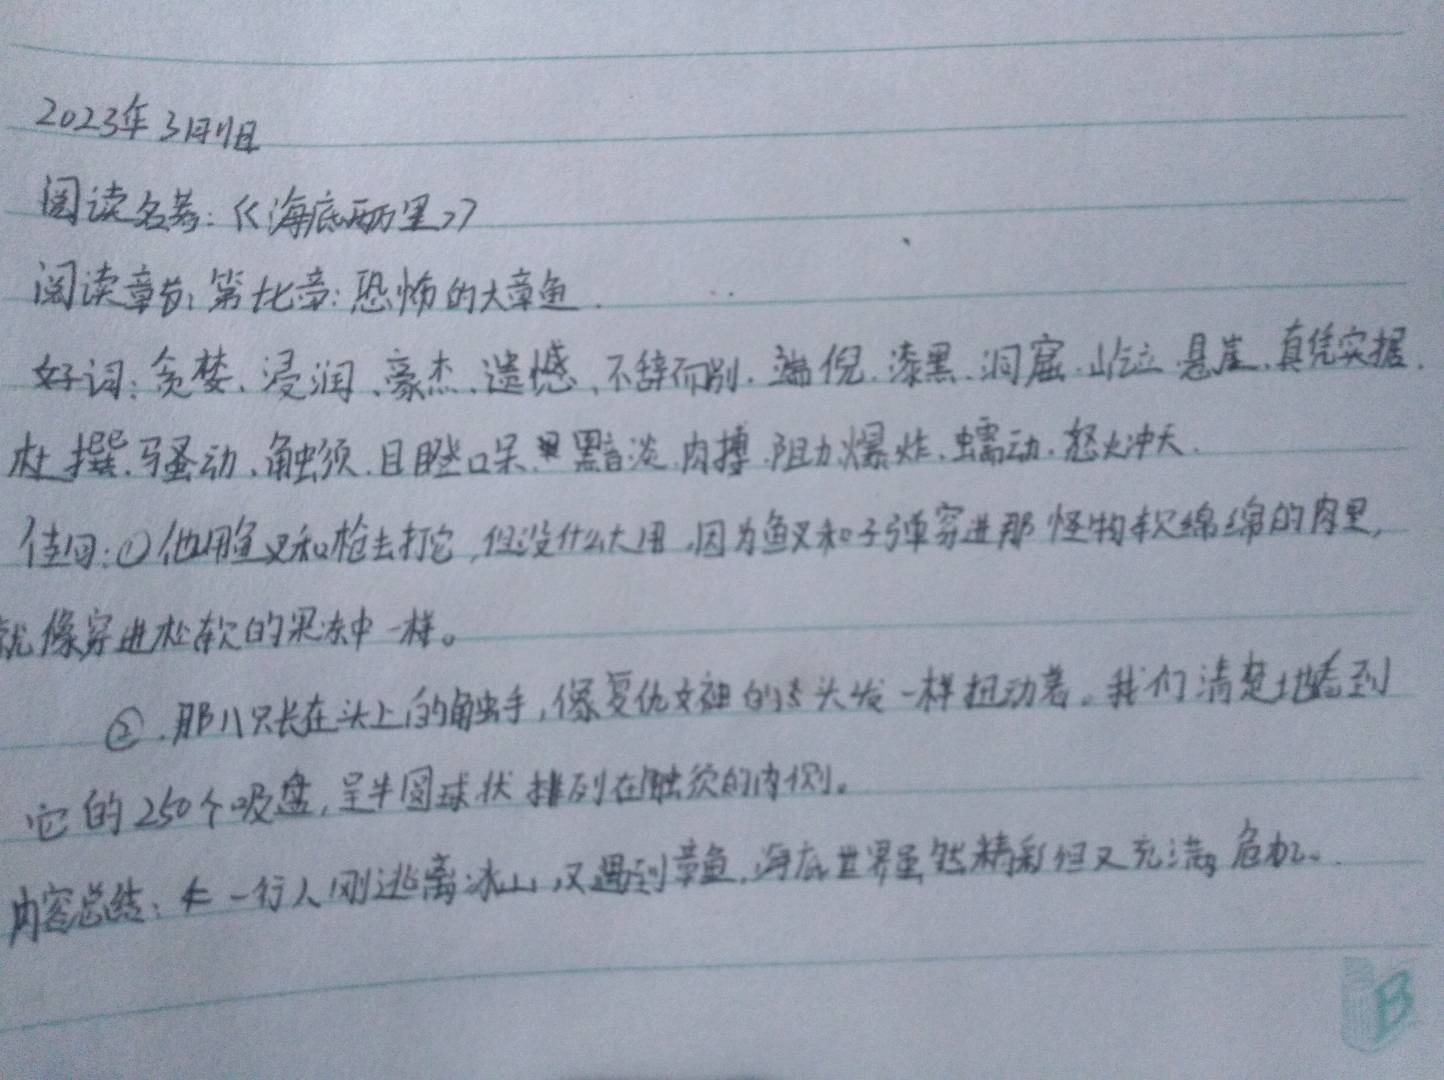 2023年3月11日
阅读名著:《海底两万里》
阅读章节:第十七章:恐怖的大章鱼.
好词:贪婪、浸润、豪杰、遗憾、不辞而别、端倪、漆黑、洞窟、屹立、悬崖、真凭实据、
杜撰、骚动、触须、目瞪口呆、黑音淡、肉搏、阻力、爆炸、蠕动、怒火冲天.
佳句:①他用鱼叉和枪去打它,但没什么大用,因为鱼叉和子弹穿进那怪物软绵绵的肉里,
就像穿进松软的果冻中一样。
②.那八只长在头上的触手,像复仇女神的头发一样扭动着。我们清楚地看到
它的250个吸盘,呈半圆球状排列在触须的内侧。
内容总结:一行人刚逃离冰山,又遇到章鱼,海底世界虽然精彩但又充满危机。
B